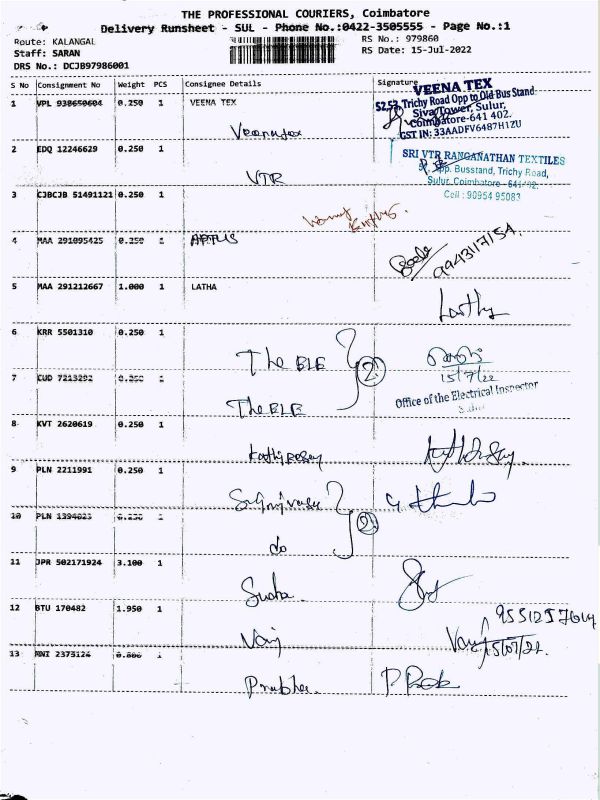 THE PROFESSIONAL COURIERS, Coimbatore
Delivery Runsheet - SUL - Phone No.:0422-3505555 - Page No.:1
Route: KALANGAL
RS No.: 979860
Staff: SARAN
RS Date: 15-Jul-2022
DRS No.: DCJB97986001
S No Consignment No Weight PCS Consignee Details Signature
1 VPL 938650604 0.250 1 VEENA TEX
VEENA TEX
52,53, Trichy Road Opp to Old Bus Stand
Siva Tower, Sulur,
Coimbatore-641 402.
GST IN: 33AADFV6487H1ZU
Veenatex
2 EDQ 12246629 0.250 1
SRI VTR RANGANATHAN TEXTILES
Opp. Busstand, Trichy Road,
Sulur, Coimbatore - 641
Cell : 90954 95083
VTR
3 CJBCJB 51491121 0.250 1
4 MAA 291095425 0.250 1 APTUS
9943117154
5 MAA 291212667 1.000 1 LATHA
Latha
6 KRR 5501310 0.250 1
The BLE
2
15/7/22
7 CUD 7213292 0.250 1
Office of the Electrical Inspector
The BLE
8 KVT 2620619 0.250 1
9 PLN 2211991 0.250 1
10 PLN 1394023 0.250 1
2
do
11 JPR 502171924 3.100 1
Sudha.
12 BTU 170482 1.950 1
15/07/22.
13 MNI 2373124 0.800 1
Prabha.